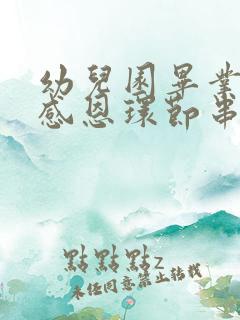 幼兒園畢業
感恩環節串
點點點z
未經同意禁止轉載